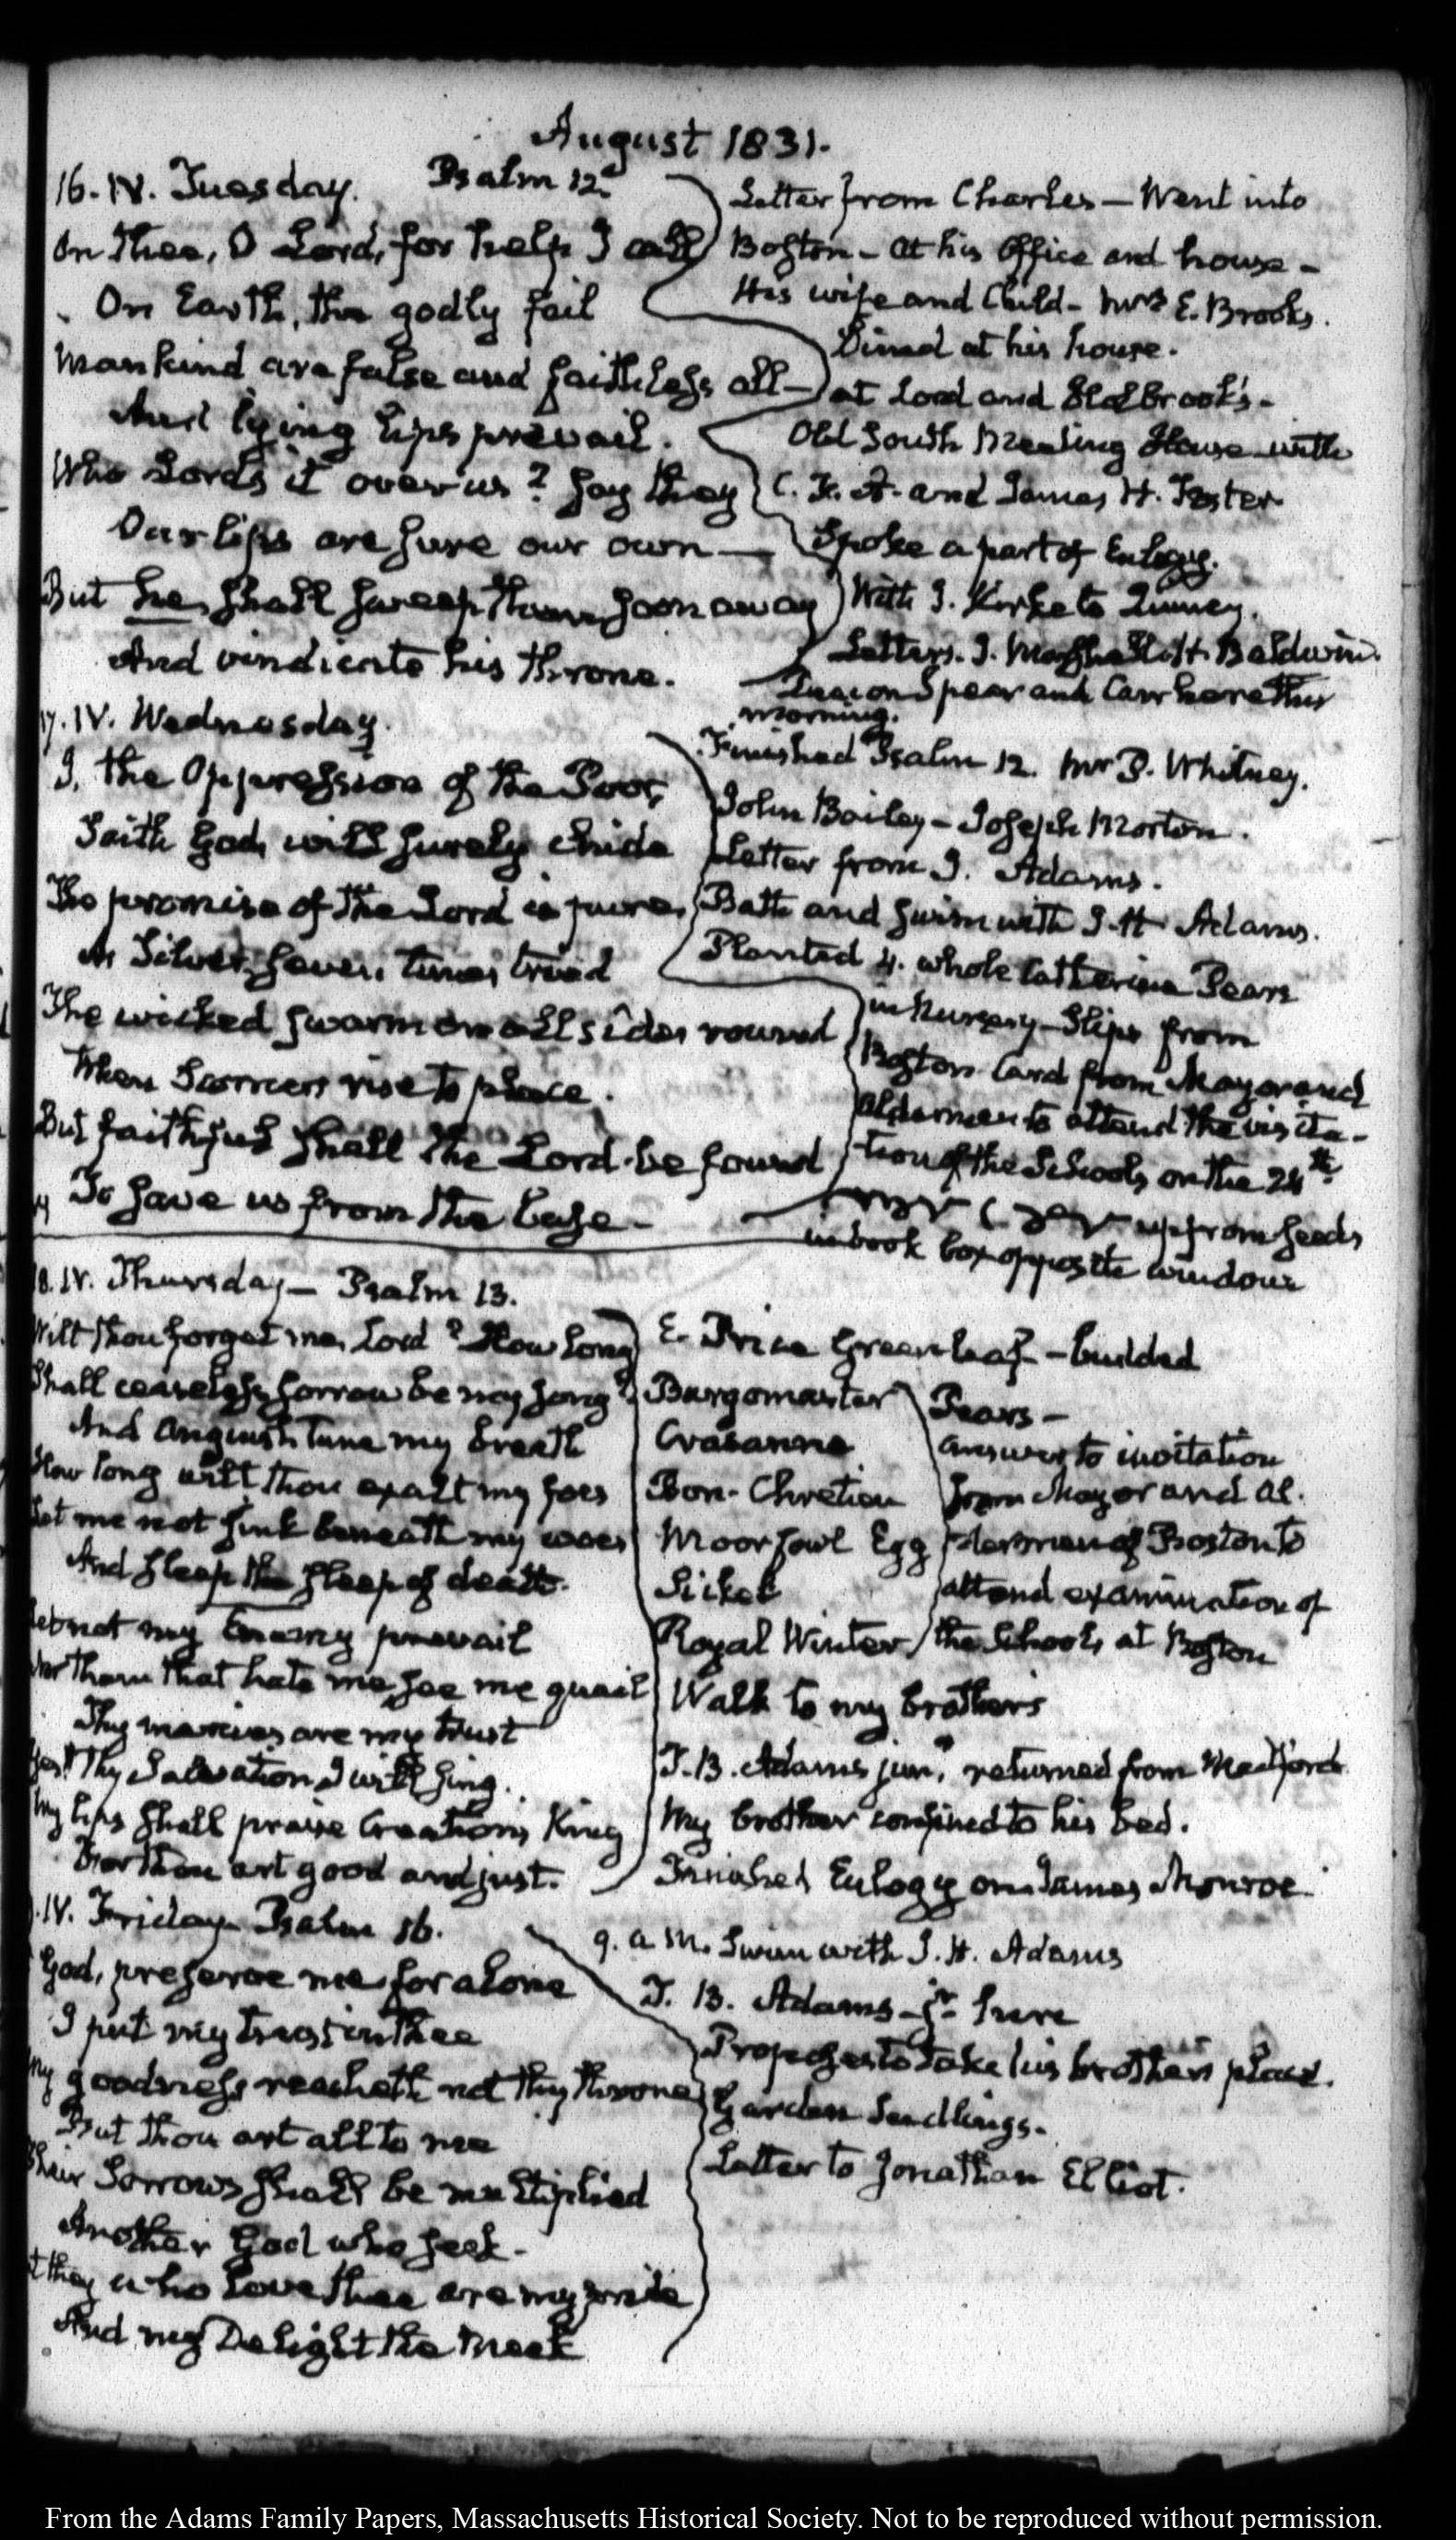 August 1831.
16. IV. Tuesday. Psalm 12.
On Thee, O Lord, for help I call
On Earth, the godly fail
Mankind are false and faithless all—
And lying lips prevail.
Who Lords it over us? say they
Our lips are sure our own—
But he shall sweep them soon away
And vindicate his throne.
Letter from Charles — Went into
Boston — at his office and house —
His wife and Child — Mrs E. Brooks.
Dined at his house.
at Lord and Holbrook's —
Old South Meeting House with
C. F. A. and James H. Foster
Spoke a part of Eulogy.
With I. Kirke to Quincy.
Letters. J. Marshall. H. Baldwin.
Deacon Spear and Carr here this
morning.
17. IV. Wednesday.
I, the Oppression of the Poor,
Saith God, will surely chide
The promise of the Lord is pure,
As Silver, seven times tried
The wicked swarm on all sides round
When Scorners rise to place.
But faithful shall the Lord be found
To save us from the base —
Finished Psalm 12. Mr P. Whitney.
John Bailey — Joseph Morton.
Letter from J. Adams.
Bath and swim with I. H. Adams.
Planted 4. whole Catherine Pears
in Nursery — Slips from
Boston Card from Mayor and
Aldermen to attend the visita-
tion of the Schools on the 24th
up from seeds
in book box opposite window
18. IV. Thursday — Psalm 13.
Wilt thou forget me, Lord? How long
Shall ceaseless sorrow be my song?
And anguish tune my breath
How long wilt thou exalt my foes
Let me not sink beneath my woes
And sleep the sleep of death.
Let not my Enemy prevail
Nor them that hate me see me quail
Thy mercies are my trust
Yes! Thy Salvation I will sing.
My lips shall praise Creation's King
For thou art good and just.
E. Price Greenleaf — budded
Burgomaster
Crasanne
Bon-Chretien
Moorfowl Egg
Sickel
Royal Winter
Pears —
answer to invitation
from Mayor and Al-
dermen of Boston to
attend examination of
the Schools at Boston
Walk to my brother's
T. B. Adams junr returned from Medford
My brother confined to his bed.
Finished Eulogy on James Monroe.
IV. Friday Psalm 16.
God, preserve me, for alone
I put my trust in thee
My goodness reacheth not thy throne
But thou art all to me
Their Sorrows shall be multiplied
Another God who seek —
they who love thee are my pride
And my Delight the meek
9. a. m. Swim with I. H. Adams
T. B. Adams jr here
Proposes to take his brother's place.
Garden Seedlings.
Letter to Jonathan Elliot.
From the Adams Family Papers, Massachusetts Historical Society. Not to be reproduced without permission.